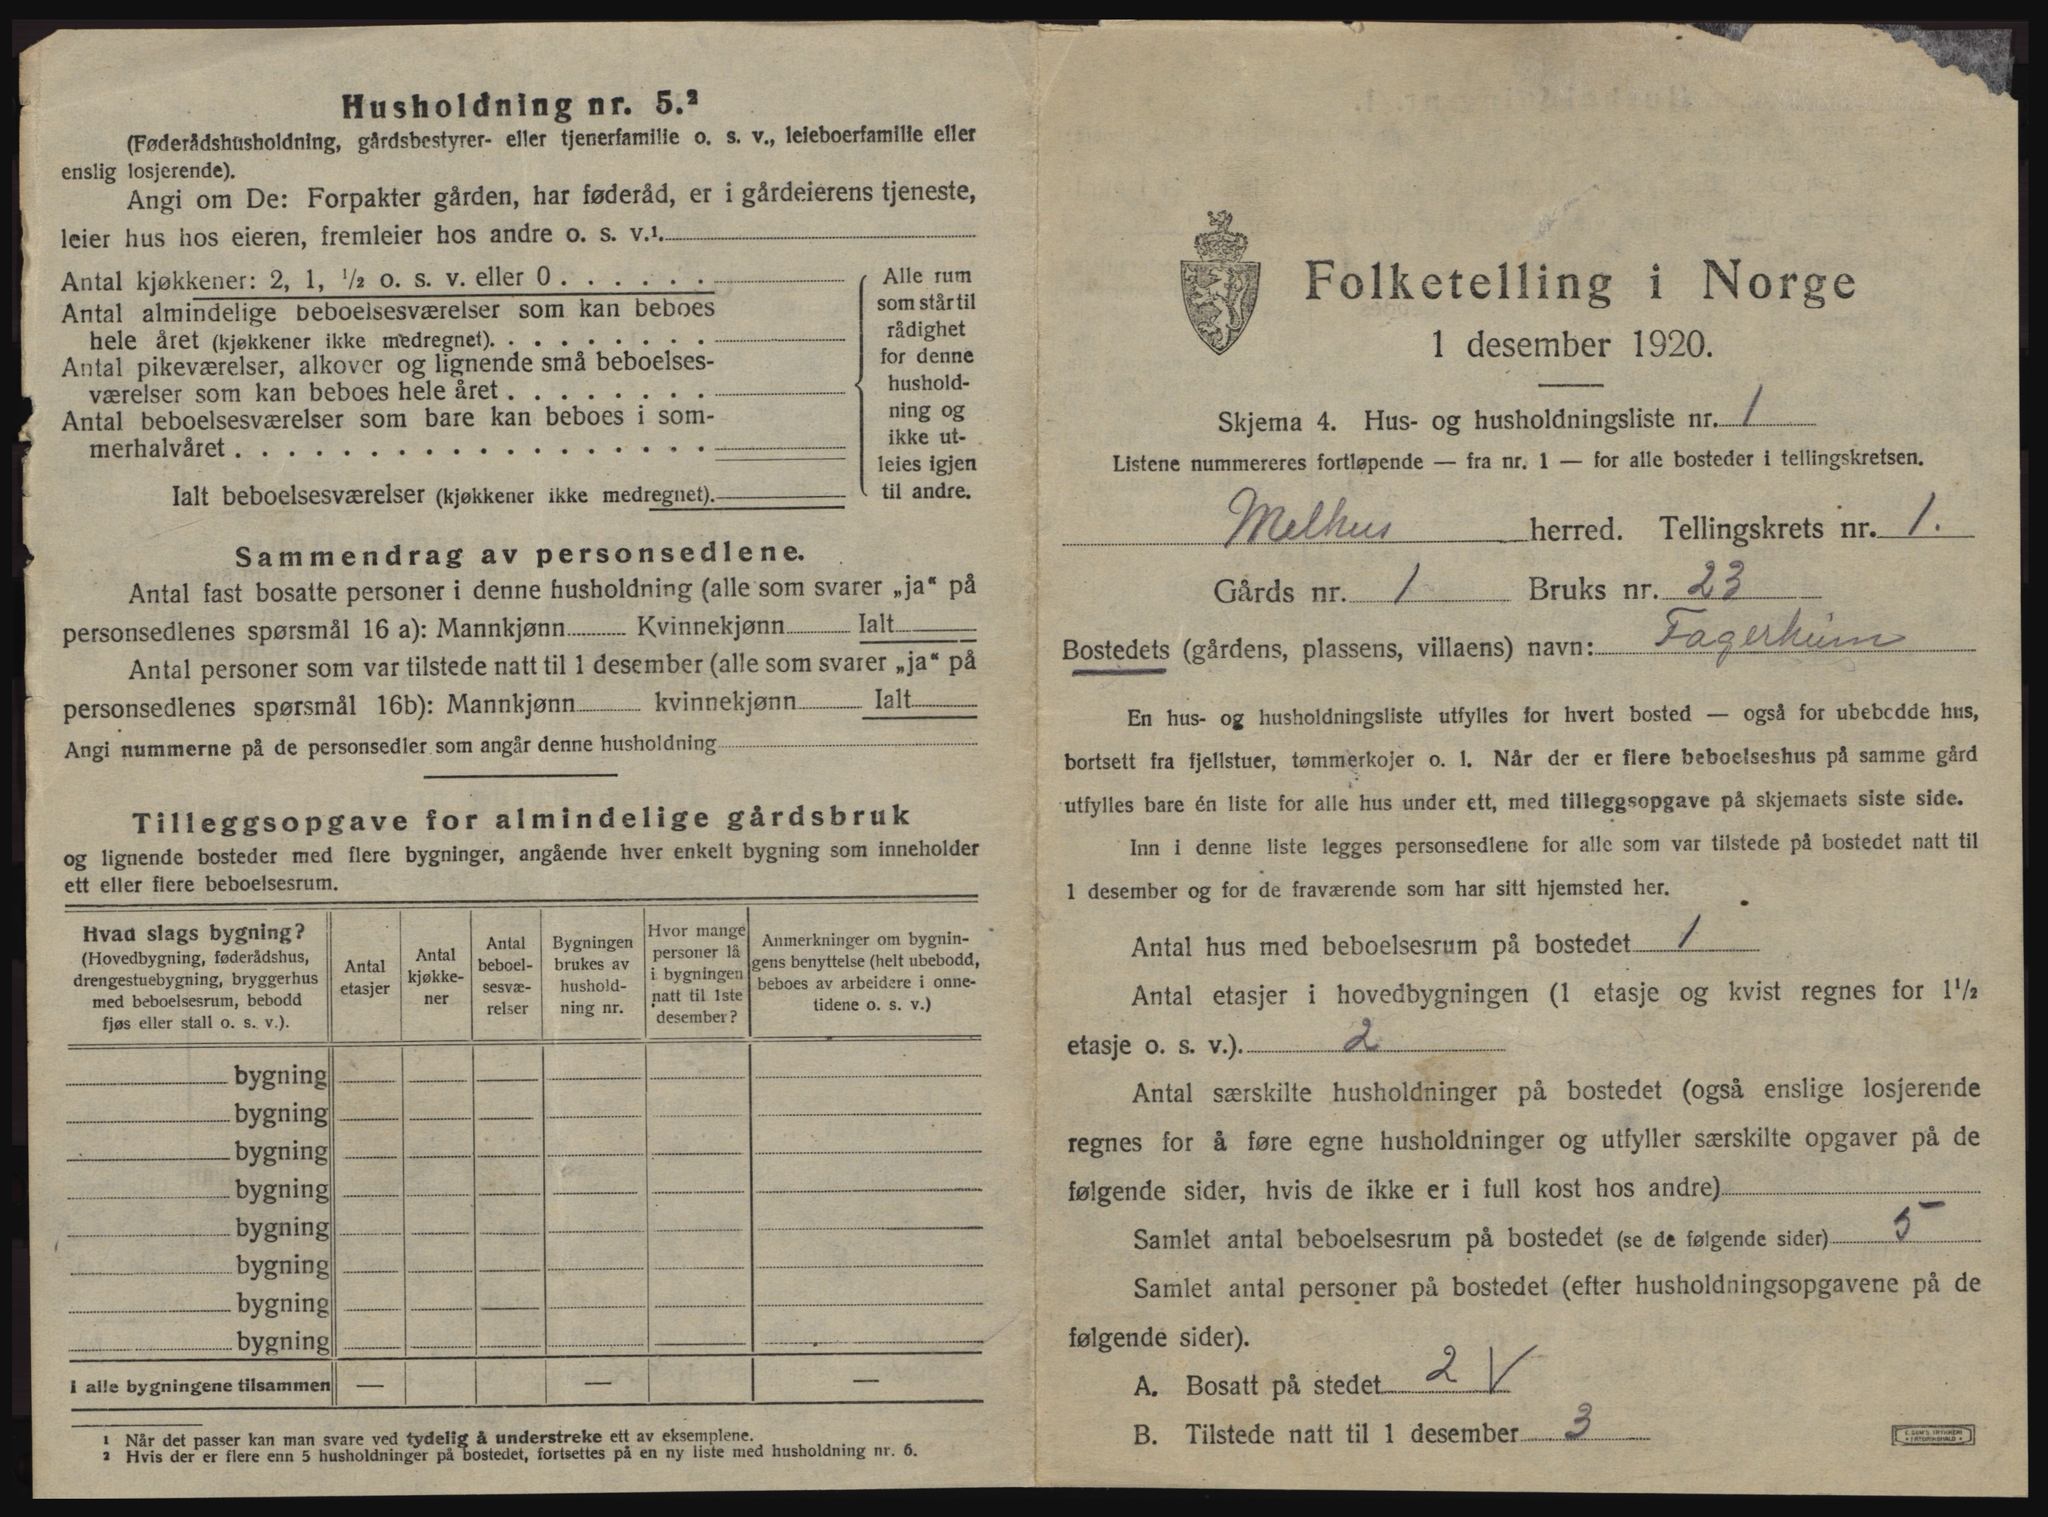 Husholdning nr. 5.²
(Føderådshusholdning, gårdsbestyrer- eller tjenerfamilie o. s. v., leieboerfamilie eller
enslig losjerende).
Angi om De: Forpakter gården, har føderåd, er i gårdeierens tjeneste,
leier hus hos eieren, fremleier hos andre o. s. v.¹
Antal kjøkkener: 2, 1, ½ o. s. v. eller 0 . . . . . .
Antal almindelige beboelsesværelser som kan beboes
hele året (kjøkkener ikke medregnet). . . . . . . . .
Antal pikeværelser, alkover og lignende små beboelses-
værelser som kan beboes hele året . . . . . . . .
Antal beboelsesværelser som bare kan beboes i som-
merhalvåret . . . . . . . . . . . . . . . . . .
Ialt beboelsesværelser (kjøkkener ikke medregnet).
Alle rum
som står til
rådighet
for denne
hushold-
ning og
ikke ut-
leies igjen
til andre.
Sammendrag av personsedlene.
Antal fast bosatte personer i denne husholdning (alle som svarer „ja“ på
personsedlenes spørsmål 16 a): Mannkjønn Kvinnekjønn Ialt
Antal personer som var tilstede natt til 1 desember (alle som svarer „ja“ på
personsedlenes spørsmål 16b): Mannkjønn kvinnekjønn Ialt
Angi nummerne på de personsedler som angår denne husholdning
Tilleggsopgave for almindelige gårdsbruk
og lignende bosteder med flere bygninger, angående hver enkelt bygning som inneholder
ett eller flere beboelsesrum.
Hvad slags bygning?
(Hovedbygning, føderådshus,
drengestuebygning, bryggerhus
med beboelsesrum, bebodd
fjøs eller stall o. s. v.).
Antal
etasjer
Antal
kjøkke-
ner
Antal
beboel-
sesvæ-
relser
Bygningen
brukes av
hushold-
ning nr.
Hvor mange
personer lå
i bygningen
natt til 1ste
desember?
Anmerkninger om bygnin-
gens benyttelse (helt ubebodd,
beboes av arbeidere i onne-
tidene o. s. v.)
bygning
bygning
bygning
bygning
bygning
bygning
bygning
bygning
I alle bygningene tilsammen — — —
¹ Når det passer kan man svare ved tydelig å understreke ett av eksemplene.
² Hvis der er flere enn 5 husholdninger på bostedet, fortsettes på en ny liste med husholdning nr. 6.
Folketelling i Norge
1 desember 1920.
Skjema 4. Hus- og husholdningsliste nr. 1
Listene nummereres fortløpende — fra nr. 1 — for alle bosteder i tellingskretsen.
Melhus herred. Tellingskrets nr. 1.
Gårds nr. 1 Bruks nr. 23
Bostedets (gårdens, plassens, villaens) navn: Fagerheim
En hus- og husholdningsliste utfylles for hvert bosted — også for ubebodde hus,
bortsett fra fjellstuer, tømmerkojer o. l. Når der er flere beboelseshus på samme gård
utfylles bare én liste for alle hus under ett, med tilleggsopgave på skjemaets siste side.
Inn i denne liste legges personsedlene for alle som var tilstede på bostedet natt til
1 desember og for de fraværende som har sitt hjemsted her.
Antal hus med beboelsesrum på bostedet 1
Antal etasjer i hovedbygningen (1 etasje og kvist regnes for 1½
etasje o. s. v.). 2
Antal særskilte husholdninger på bostedet (også enslige losjerende
regnes for å føre egne husholdninger og utfyller særskilte opgaver på de
følgende sider, hvis de ikke er i full kost hos andre)
Samlet antal beboelsesrum på bostedet (se de følgende sider) 5
Samlet antal personer på bostedet (efter husholdningsopgavene på de
følgende sider).
A. Bosatt på stedet 2 V
B. Tilstede natt til 1 desember 3